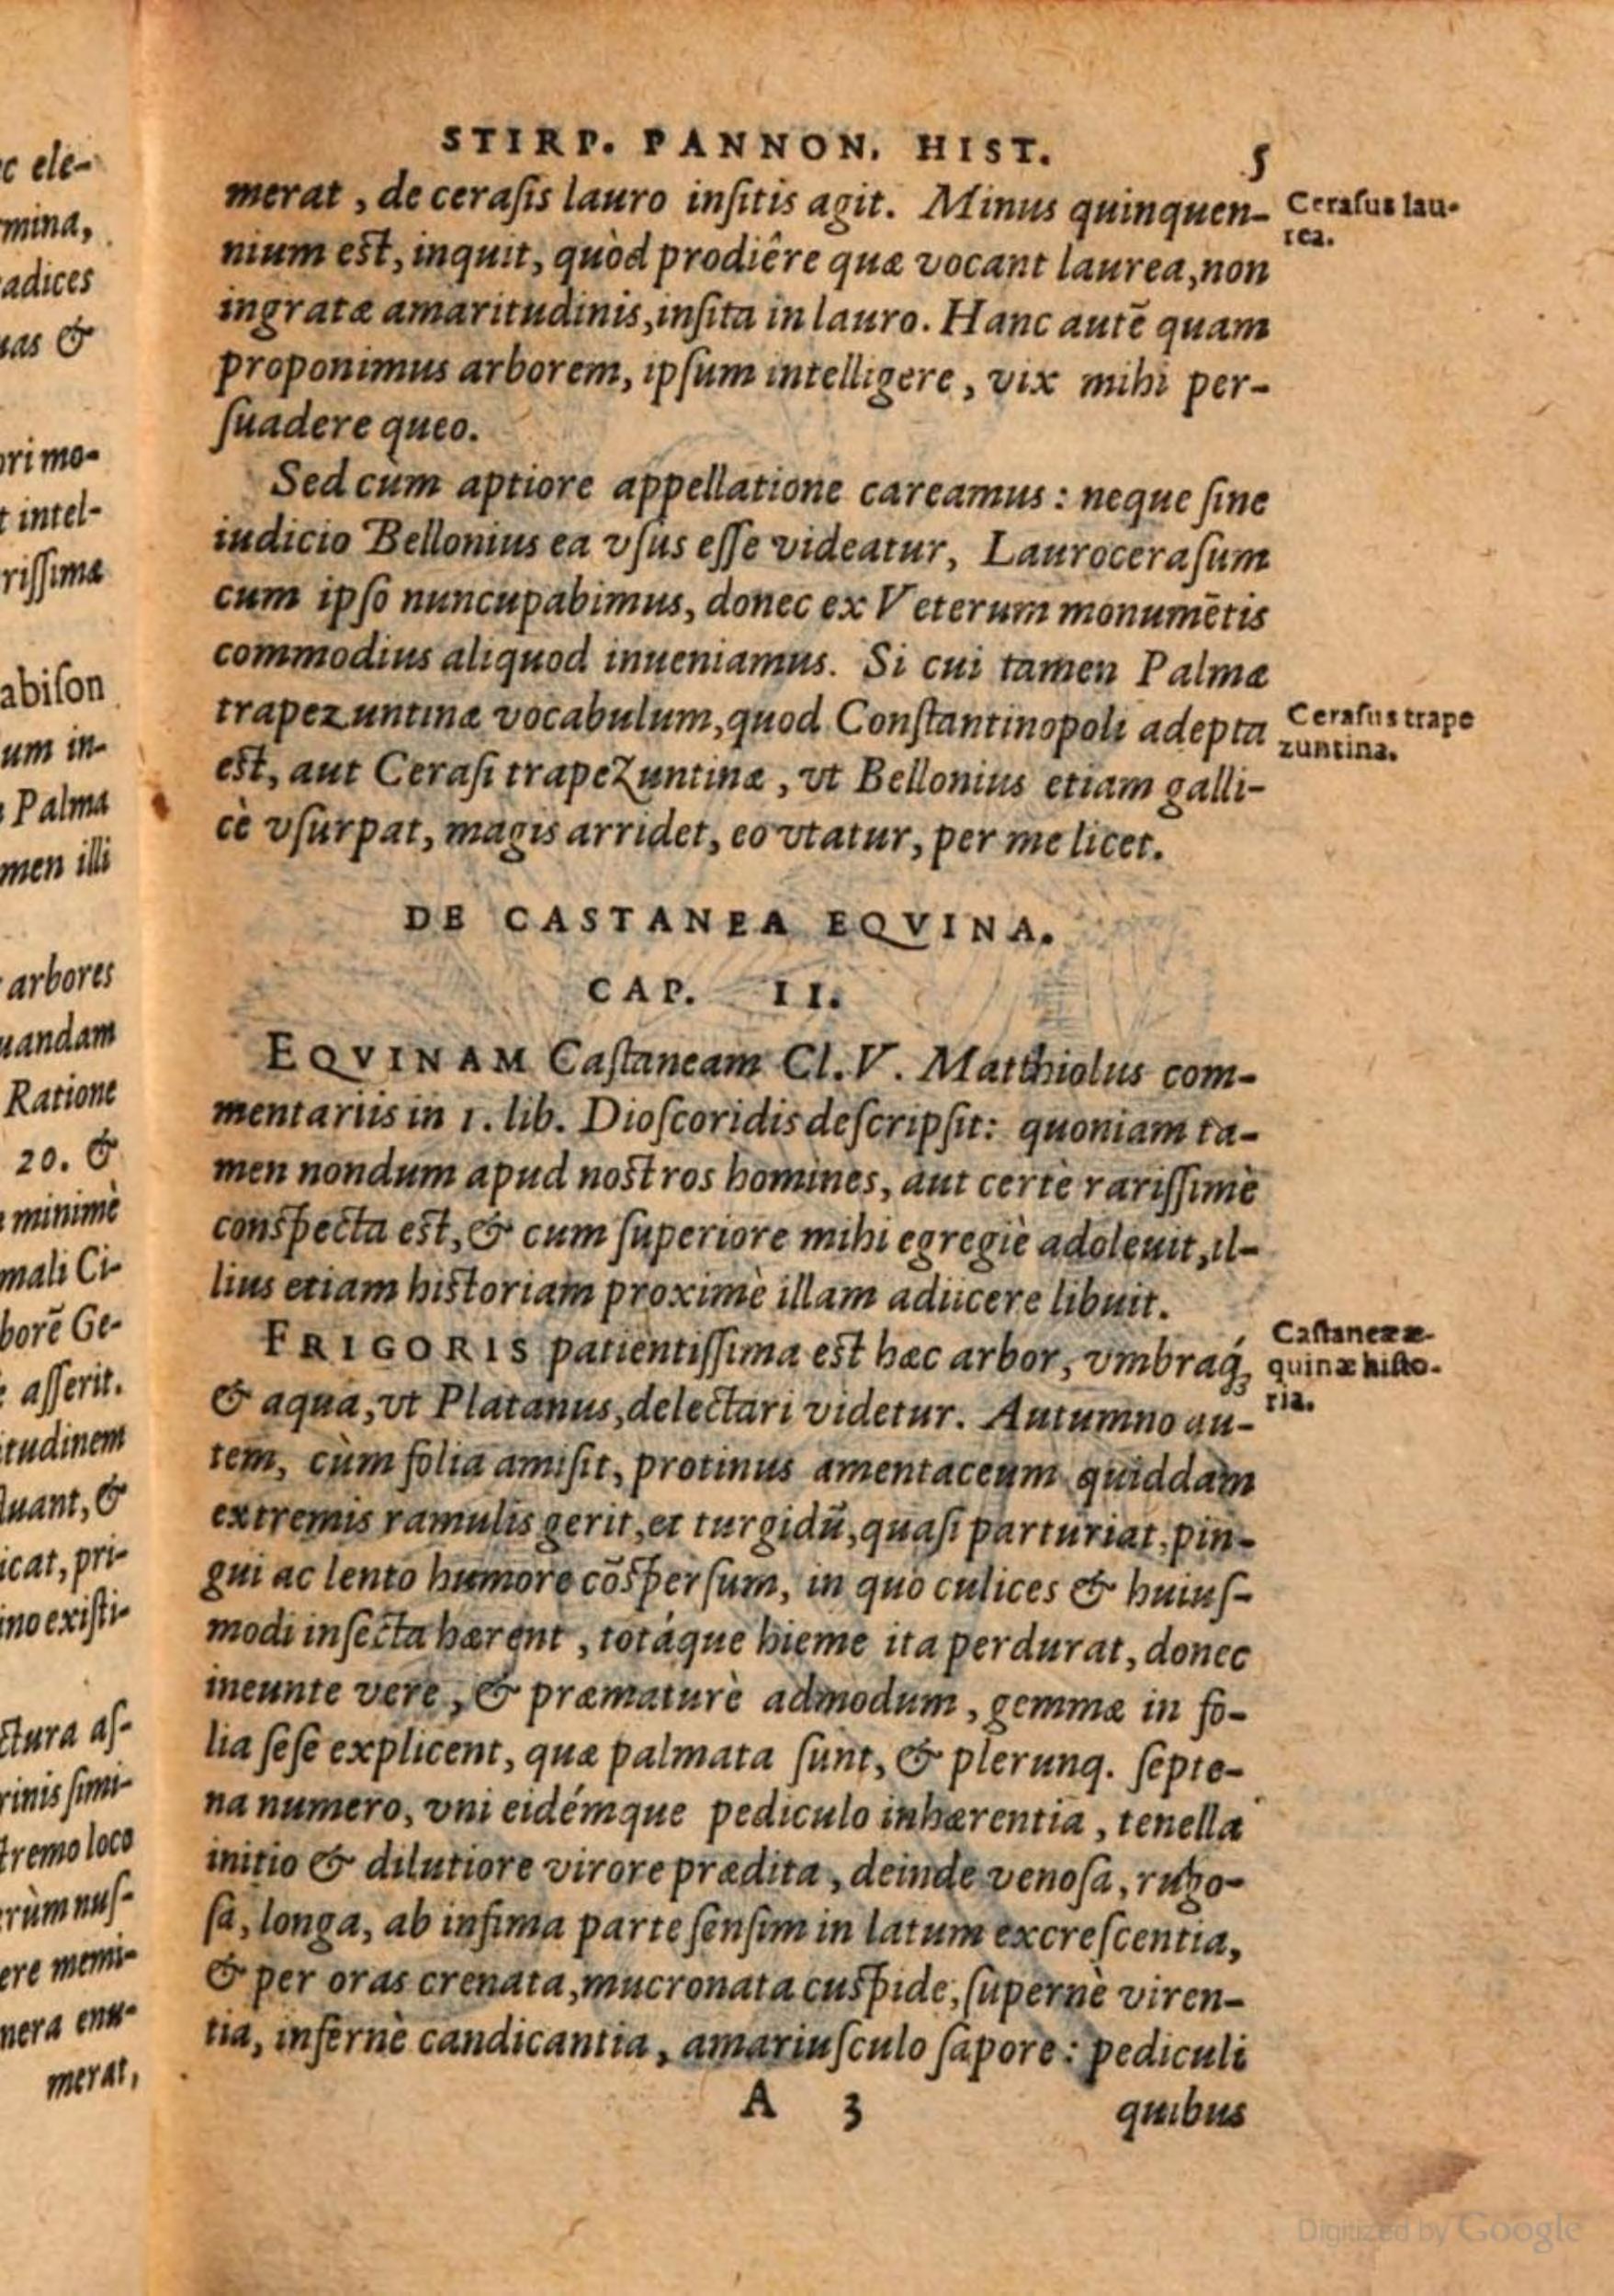 STIRP. PANNON. HIST. 5
merat, de cerasis lauro insitis agit. Minus quinquen-
nium est, inquit, quòd prodiêre quæ vocant laurea, non
ingratæ amaritudinis, insita in lauro. Hanc autē quam
proponimus arborem, ipsum intelligere, vix mihi per-
suadere queo.
Sed cùm aptiore appellatione careamus: neque sine
iudicio Bellonius ea vsus esse videatur, Laurocerasum
cum ipso nuncupabimus, donec ex Veterum monumētis
commodius aliquod inueniamus. Si cui tamen Palmæ
trapezuntinæ vocabulum, quod Constantinopoli adepta
est, aut Cerasi trapezuntinæ, vt Bellonius etiam galli-
cè vsurpat, magis arridet, eo vtatur, per me licet.
Cerasus lau-
rea.
Cerasus trape
zuntina.
DE CASTANEA EQVINA.
CAP. II.
EQVINAM Castaneam Cl. V. Matthiolus com-
mentariis in 1. lib. Dioscoridis descripsit: quoniam ta-
men nondum apud nostros homines, aut certè rarissimè
conspecta est, & cum superiore mihi egregiè adoleuit, il-
lius etiam historiam proximè illam adiicere libuit.
FRIGORIS patientissima est hæc arbor, vmbraq́;
& aqua, vt Platanus, delectari videtur. Autumno au-
tem, cùm folia amisit, protinus amentaceum quiddam
extremis ramulis gerit, et turgidū, quasi parturiat, pin-
gui ac lento humore cōspersum, in quo culices & huius-
modi insecta hærent, totáque hieme ita perdurat, donec
ineunte vere, & præmaturè admodum, gemmæ in fo-
lia sese explicent, quæ palmata sunt, & plerunq. septe-
na numero, vni eidémque pediculo inhærentia, tenella
initio & dilutiore virore prædita, deinde venosa, rugo-
sa, longa, ab infima parte sensim in latum excrescentia,
& per oras crenata, mucronata cuspide, supernè viren-
tia, infernè candicantia, amariusculo sapore: pediculi
Castaneæ æ-
quinæ histo-
ria.
A 3 quibus
c ele-
mina,
adices
uas &
ori mo-
t intel-
rissimæ
abison
um in-
Palma
men illi
arbores
uandam
Ratione
20. &
minimè
mali Ci-
borē Ge-
asserit.
itudinem
luant, &
icat, pri-
ino existi-
ctura as-
rinis simi-
tremo loco
rùm nus-
ere memi-
nera enu-
merat,
Digitized by Google